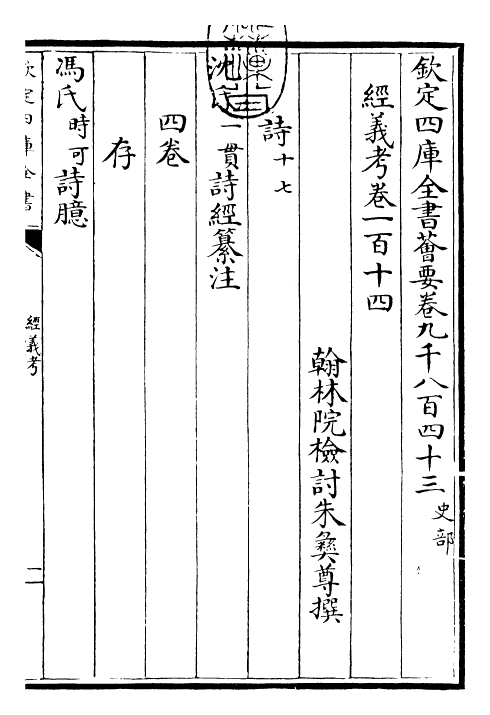 欽定四庫全書薈要卷九千八百四十三 史部
經義考卷一百十四
翰林院檢討朱彝尊撰
詩十七
沈氏一貫詩經纂注
四卷
存
馮氏時可詩臆
欽定四庫全書
經義考
一